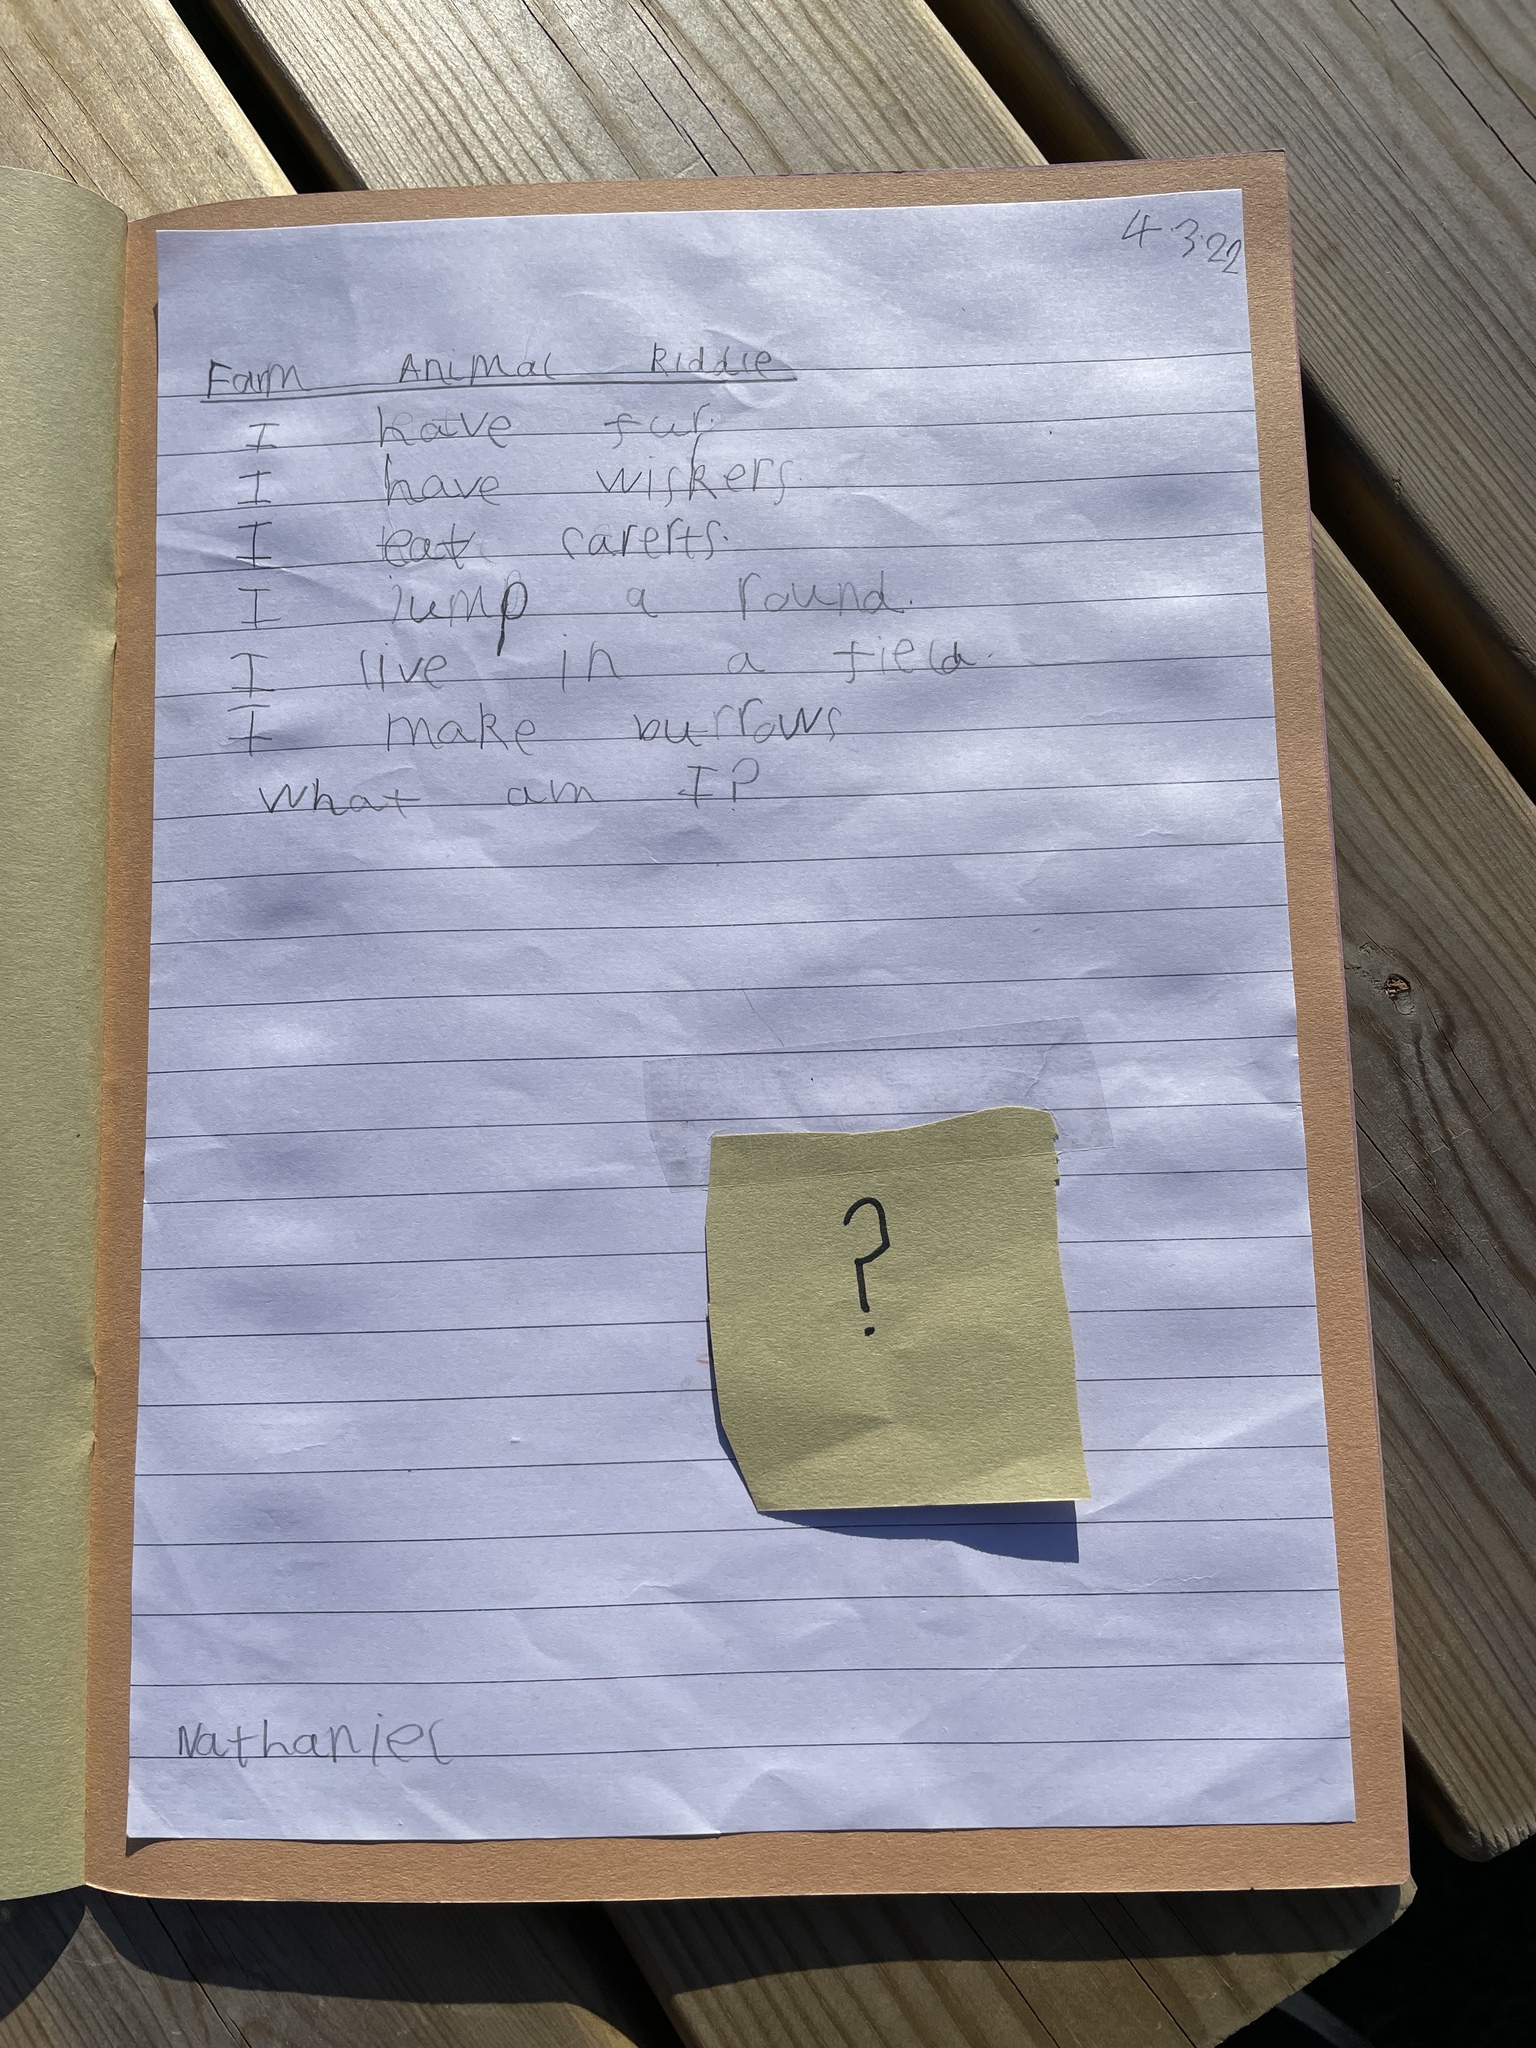 4.3.22
Farm Animal Riddle
I have fur.
I have wiskers.
I eat carerts.
I jump a round.
I live in a field.
I make burrows
What am I?
?
Nathaniel